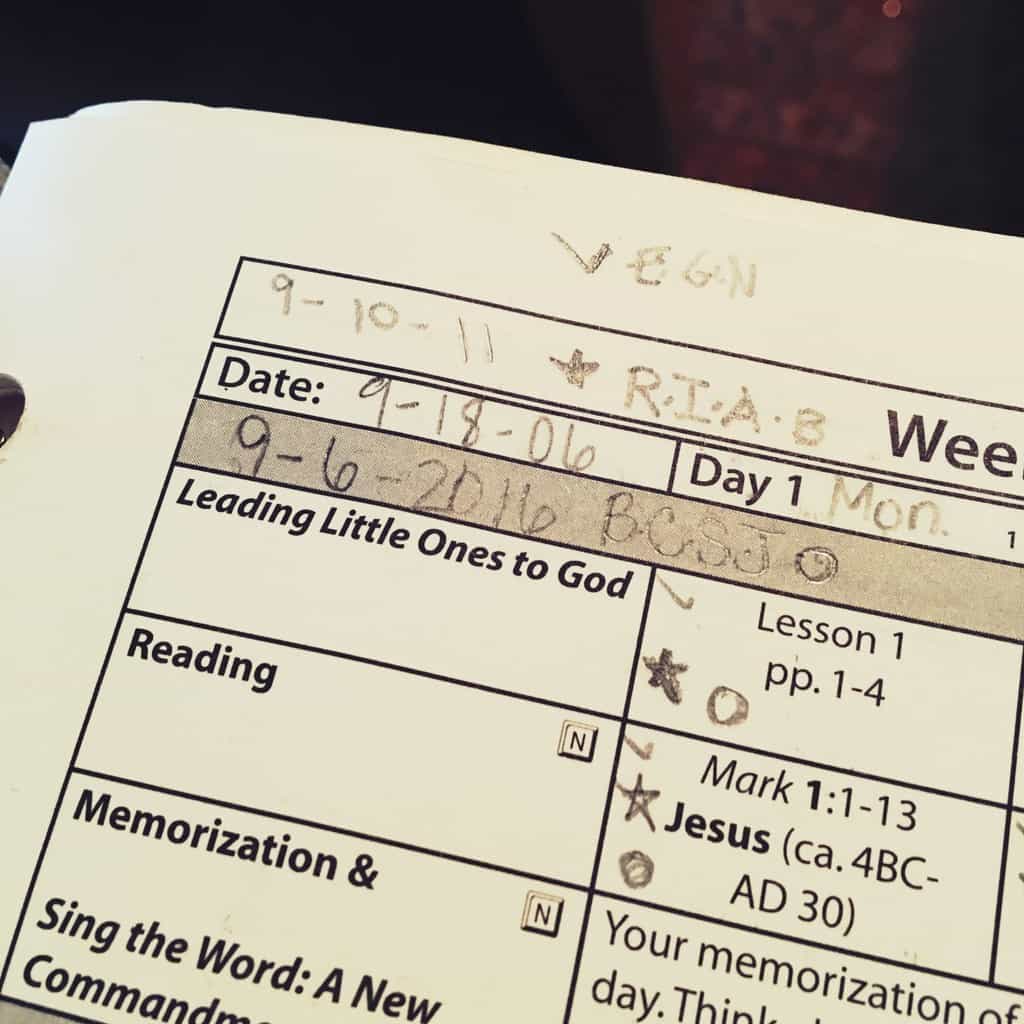 ✓ EGN
9-10-11 ★ R.I.A.B
Date: 9-18-06
Day 1 Mon.
1
9-6-2016 BCSJO
Leading Little Ones to God
Lesson 1
pp. 1-4
Reading
N
Mark 1:1-13
Jesus (ca. 4BC-
AD 30)
Memorization &
N
Sing the Word: A New
Your memorization of
day.